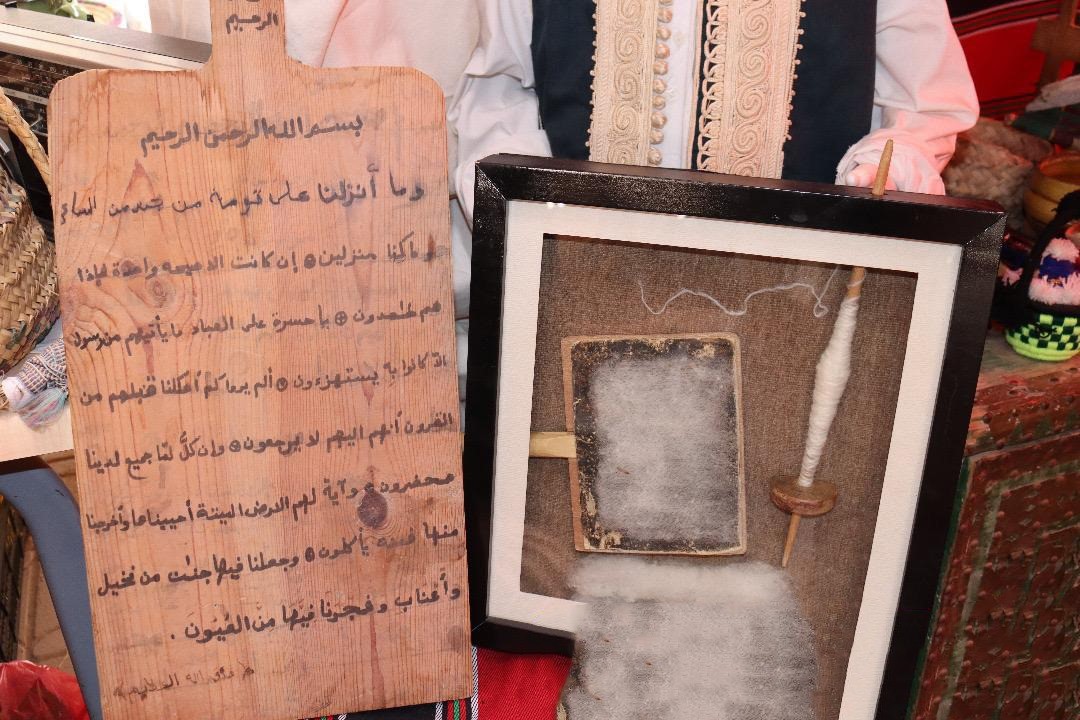 الرحيم
بسم الله الرحمن الرحيم
وما أنزلنا على قومه من جند من السماء
وما كنا منزلين إن كانت الا صيحة واحدة فإذا
هم خامدون يا حسرة على العباد ما يأتيهم من رسول
الا كانوا به يستهزءون ألم يروا كم أهلكنا قبلهم من
القرون أنهم اليهم لا يرجعون وإن كلٌّ لمّا جميع لدينا
محضرون وآية لهم الارض الميتة أحييناها وأخرجنا
منها فمنه يأكلون وجعلنا فيها جنّت من نخيل
وأعناب وفجرنا فيها من العُيُونَ .